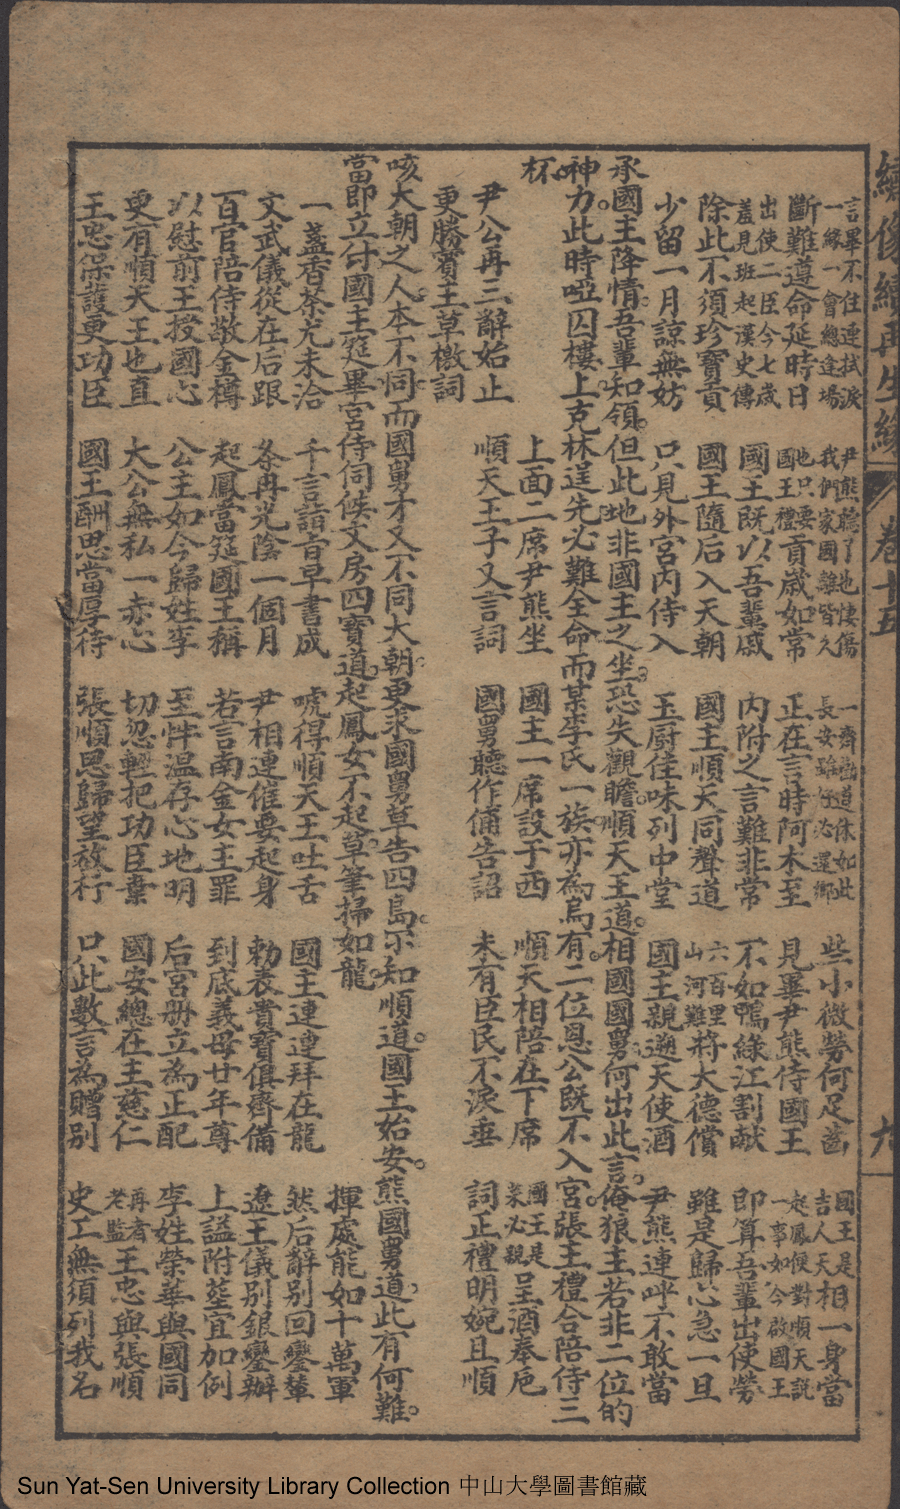 繡像續再生緣 卷十五 九
言畢不住連拭淚 一緣一會總逢場 尹熊聽了也悽傷 我們家國離皆久 一齊勸道休如此 長安雖好必還鄉 些小微勞何足齒 國王是吉人天相一身當
斷難遵命延時日 也只要國王禮貢歲如常 正在言時阿木至 見畢尹熊侍國王 起鳳便對順天説 一事如今啟國王
出使二臣今七歲 蓋見班起漢史傳 國王既以吾輩戚 內附之言難非常 不如鴨綠江割獻 即算吾輩出使勞
除此不須珍寶貢 國王隨后入天朝 國主順天同聲道 六百里山河難將大德償 雖是歸心急一旦
少留一月諒無妨 只見外宮內侍入 玉厨佳味列中堂 國主親遞天使酒 尹熊連呼不敢當
承國主降情。吾輩知領。但此地非國主之坐。恐失觀瞻。順天王道。相國國舅何出此言。俺狼主若非二位的
神力。此時啞囚樓上克林逞先必難全命。而某李氏一族。亦為烏有。二位恩公既不入宮。張王禮合陪侍三
杯。 上面二席尹熊坐 國主一席設于西 順天相陪在下席 國王是菜必親呈酒奉卮
尹公再三辭始止 順天王子又言詞 國舅聽作俑告詔 未有臣民不淚垂 詞正禮明婉且順
更勝賓王草檄詞
咳大朝之人本不同。而國舅才又不同大朝。更求國舅草告四島。不知順道。國王始安。熊國舅道。此有何難。
當即立付國王。筵畢宮侍伺候文房四寶。道起鳳女不起草。筆掃如龍。 揮處能如十萬軍
一盞香茶尤未洽 千言詣旨早書成 唬得順天王吐舌 國主連連拜在龍 然后辭別回鑾輦
文武儀從在后跟 条再光陰一個月 尹相連催要起身 勅表貴寶俱齊備 遼王儀別銀鑾辦
百官陪侍敬金樽 起鳳當筵國王稱 若言南金女主罪 到底義母廿年尊 上謚附塟宜加例
以慰前王授國心 公主如今歸姓李 至忤温存心地明 后宮册立為正配 李姓榮華與國同
更有順天王也直 大公無私一赤心 切忽輕把功臣棄 國安總在王慈仁 再者老監王忠與張順
王忠保護更功臣 國王酬思當厚待 張順恩歸望放行 只此數言為贈別 史工無須列我名
Sun Yat-Sen University Library Collection 中山大學圖書館藏